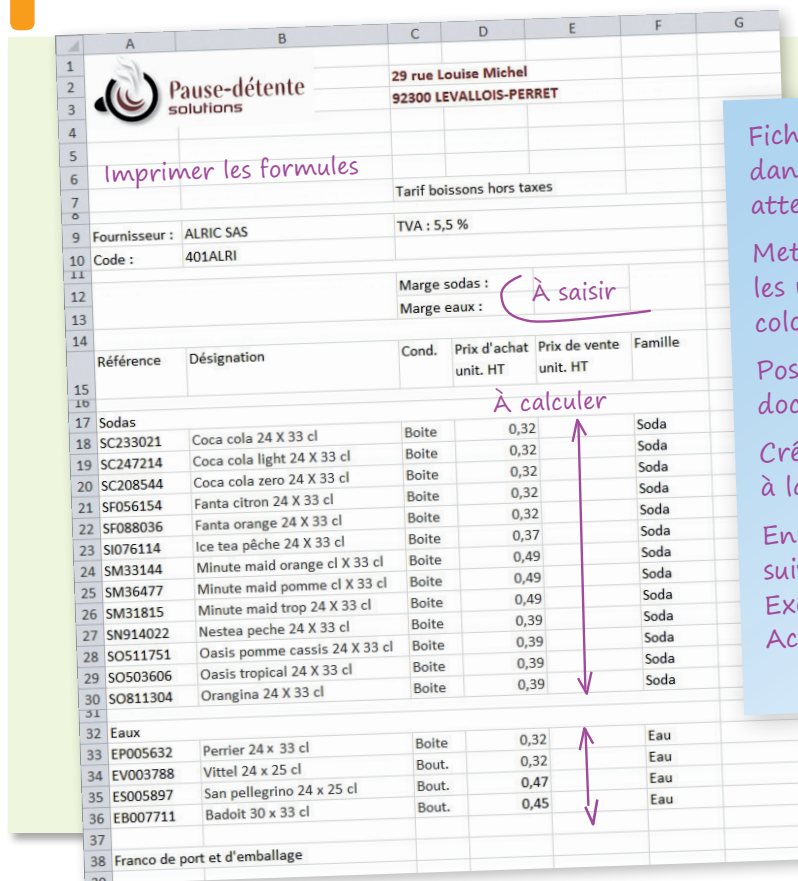 A B C D E F G
1
2 Pause-détente 29 rue Louise Michel
3 solutions 92300 LEVALLOIS-PERRET
4
5
6 Imprimer les formules
7 Tarif boissons hors taxes
8
9 Fournisseur : ALRIC SAS TVA : 5,5 %
10 Code : 401ALRI
11
12 Marge sodas : À saisir
13 Marge eaux :
14
Référence Désignation Cond. Prix d'achat Prix de vente Famille
15 unit. HT unit. HT
16 À calculer
17 Sodas
18 SC233021 Coca cola 24 X 33 cl Boite 0,32 Soda
19 SC247214 Coca cola light 24 X 33 cl Boite 0,32 Soda
20 SC208544 Coca cola zero 24 X 33 cl Boite 0,32 Soda
21 SF056154 Fanta citron 24 X 33 cl Boite 0,32 Soda
22 SF088036 Fanta orange 24 X 33 cl Boite 0,32 Soda
23 SI076114 Ice tea pêche 24 X 33 cl Boite 0,37 Soda
24 SM33144 Minute maid orange cl X 33 cl Boite 0,49 Soda
25 SM36477 Minute maid pomme cl X 33 cl Boite 0,49 Soda
26 SM31815 Minute maid trop 24 X 33 cl Boite 0,49 Soda
27 SN914022 Nestea peche 24 X 33 cl Boite 0,39 Soda
28 SO511751 Oasis pomme cassis 24 X 33 cl Boite 0,39 Soda
29 SO503606 Oasis tropical 24 X 33 cl Boite 0,39 Soda
30 SO811304 Orangina 24 X 33 cl Boite 0,39 Soda
31
32 Eaux
33 EP005632 Perrier 24 x 33 cl Boite 0,32 Eau
34 EV003788 Vittel 24 x 25 cl Bout. 0,32 Eau
35 ES005897 San pellegrino 24 x 25 cl Bout. 0,47 Eau
36 EB007711 Badoit 30 x 33 cl Bout. 0,45 Eau
37
38 Franco de port et d'emballage
les
à